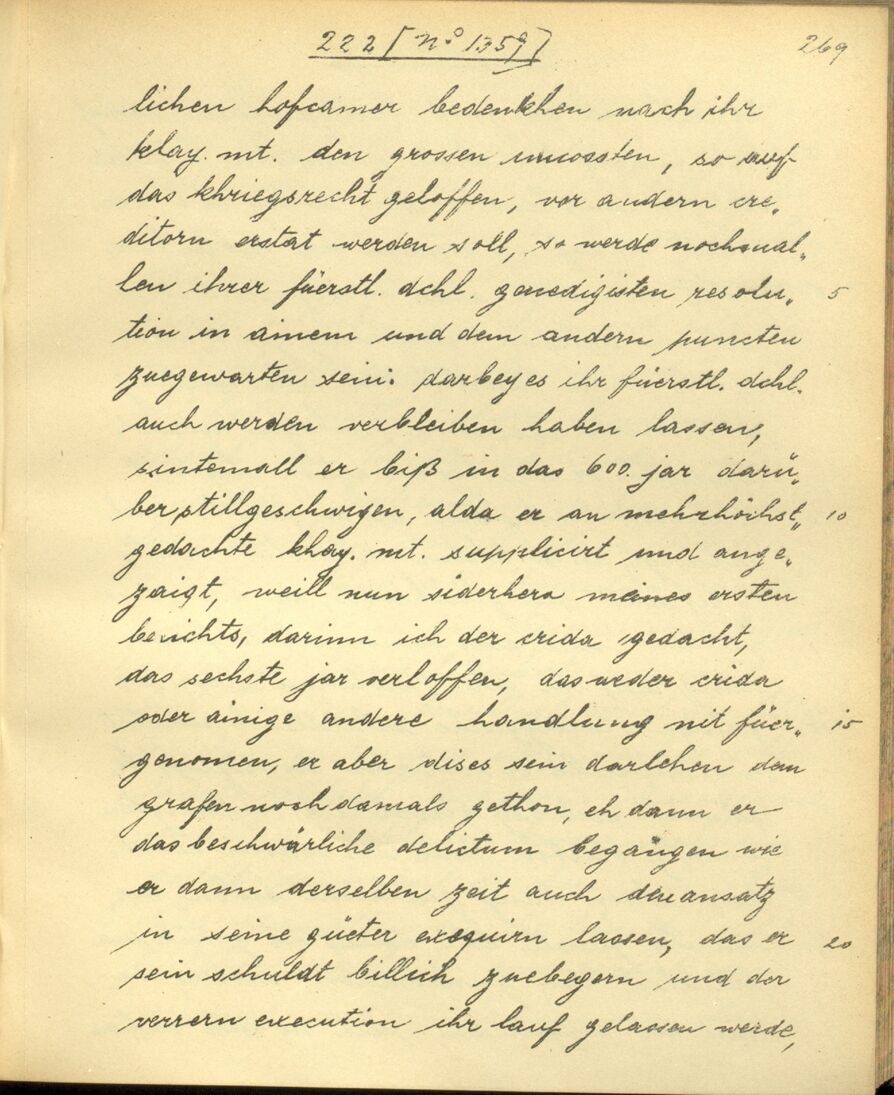 222 [ n.º 1359 ] 269
lichen hofcamer bedenkhen nach ihr
khay. mt. den grossen uncossten, so auf
das khriegsrecht geloffen, vor andern cre„
ditorn erstat werden soll, so werde nochmal„
len ihrer füerstl. dchl. genedigisten resolu„ 5
tion in ainem und dem andern puncten
zuegewarten sein. darbey es ihr füerstl. dchl.
auch werden verbleiben haben lassen,
sintemall er biß in das 600. jar darü„
ber stillgeschwigen, alda er an mehrhöchst„ 10
gedachte khay. mt. supplicirt und ange„
zaigt, weill nun siderhero meines ersten
berichts, darinn ich der crida gedacht,
das sechste jar verloffen, das weder crida
oder ainige andere handlung nit füer„ 15
genomen, er aber dises sein darlehen dem
grafen noch damals gethon, eh dann er
das beschwärliche delictum begangen wie
er dann derselben zeit auch den ansatz
in seine güeter exequirn lassen, das er 20
sein schuldt billich zuebegern und der
verrern execution ihr lauf gelassen werde,